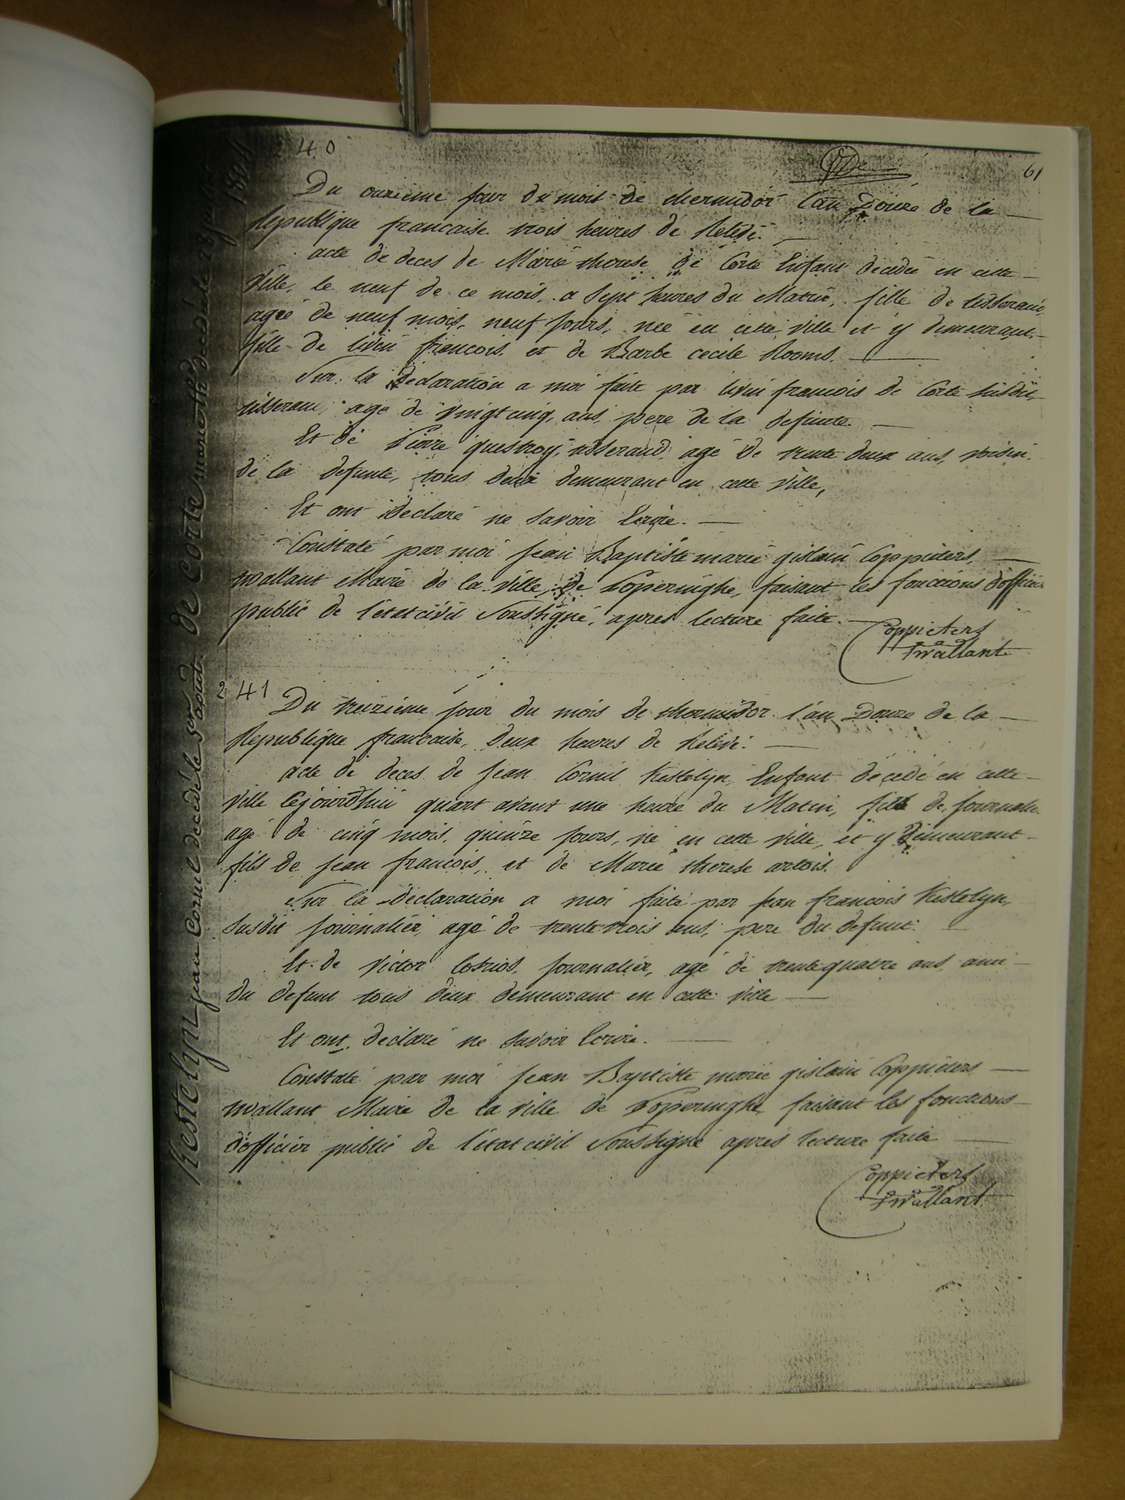 40
61
Du onzieme jour du mois de thermidor l'an Douze de la
Republique francaise trois heures de Relevé.
acte de deces de Marie therese de Corte Enfant decedée en cette
ville, le neuf de ce mois, a sept heures du Matin, fille de tisserand
agée de neuf mois, neuf jours, née en cette ville et y demeurant
fille de livin francois et de Barbe cecile Rooms.
Sur la Declaration a moi faite par livin francois de Corte susdit
tisserand, agé de vingt cinq ans, pere de la defunte
Et de Pierre questroy, tisserand, agé de trente deux ans, voisin
de la defunte, tous deux demeurant en cette ville,
Et ont declaré ne savoir Ecrire.
Constaté par moi Jean Baptiste marie gislain Coppieters
wallant Maire de la ville de Poperinghe, faisant les fonctions d'officier
public de l'etat civil Soussigné, apres lecture faite.
Coppieters
wallant
de Corte marie th decedé le 28 1804
2
41
Du treizieme jour du mois de thermidor l'an Douze de la
Republique francaise, deux heures de Relevé.
acte de deces de Jean Cornil Kestelyn Enfant décedé en cette
ville Cejourdhui quart avant une heure du Matin, fils de journalier
agé de cinq mois quinze jours, né en cette ville, et y demeurant
fils de jean francois, et de Marie therese artois.
Sur la Declaration a moi faite par jean francois Kestelyn,
susdit journalier, agé de trente trois ans, pere du defunt.
Et de victor journalier, agé de trente quatre ans ami
du defunt tous deux demeurant en cette ville
Et ont declaré ne savoir Ecrire.
Constaté par moi Jean Baptiste marie gislain Coppieters
wallant Maire de la ville de Poperinghe faisant les fonctions
d'officier public de l'etat civil Soussigné apres lecture faite
Coppieters
wallant
Kestelyn jean Cornil decedé le 1er aout